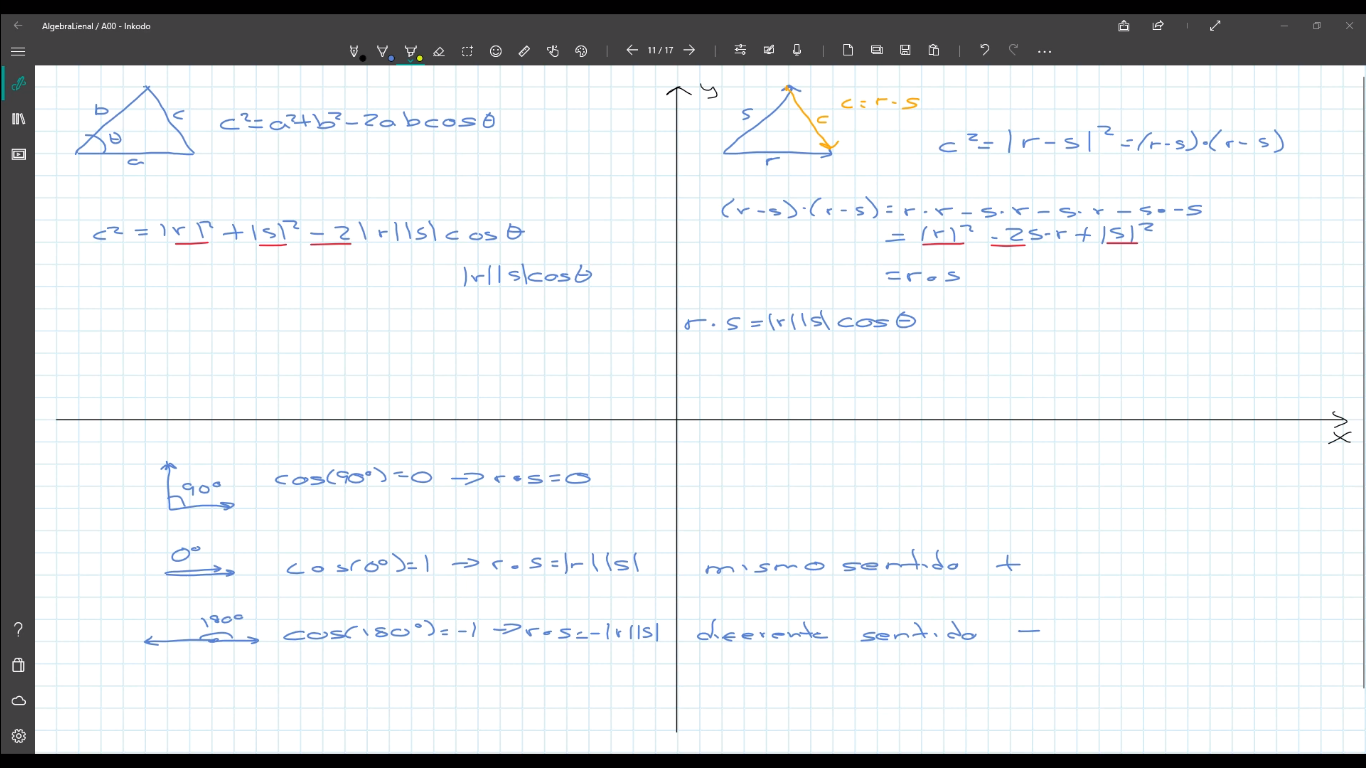 AlgebraLienal / A00 - Inkodo
11 / 17
b
c
θ
a
c²=a²+b²-2abcosθ
y
s
c
r
c=r-s
c²=|r-s|²=(r-s)·(r-s)
(r-s)·(r-s)=r·r-s·r-s·r-s·-s
c²=|r|²+|s|²-2|r||s|cosθ
=|r|²-2s·r+|s|²
|r||s|cosθ
=r·s
r·s=|r||s|cosθ
x
90°
cos(90°)=0 → r·s=0
0°
cos(0°)=1 → r·s=|r||s|
mismo sentido +
180°
cos(180°)=-1 → r·s=-|r||s|
diferente sentido -